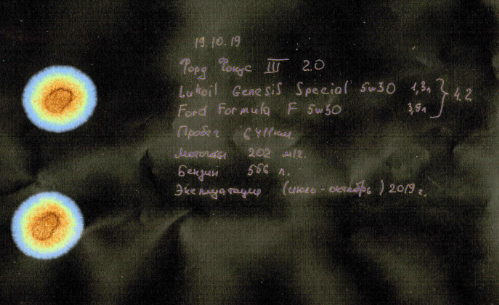 19.10.19
Форд Фокус III 2.0
Lukoil Genesis Special 5w30 1,3л
Ford Formula F 5w30 3,9л } 4.2
Пробег 6411км.
Моточасы 202 м/ч.
Бензин 556 л.
Эксплуатация (июль - октябрь) 2019 г.